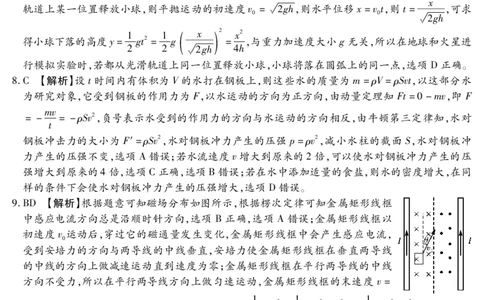 轨道上某一位置释放小球,则平抛运动的初速度 v₀ = √(2gh),则水平位移 x = v₀t,则 t = x/√(2gh),可求
得小球下落的高度 y = 1/2 gt² = 1/2 g (x/√(2gh))² = x²/4h,与重力加速度大小 g 无关,所以在地球和火星进
行模拟实验时,若都从光滑轨道上同一位置释放小球,小球将落在圆弧上的同一点,选项 D 正确。
8. C 【解析】设 t 时间内有体积为 V 的水打在钢板上,则这些水的质量为 m = ρV = ρSvt,以这部分水
为研究对象,它受到钢板的作用力为 F,以水运动的方向为正方向,由动量定理知 Ft = 0 - mv,即 F
= - mv/t = - ρSv²,负号表示水受到的作用力的方向与水运动的方向相反,由牛顿第三定律知,水对
钢板冲击力的大小为 F′ = ρSv²,水对钢板冲力产生的压强 p = ρv²,减小水柱的截面 S,水对钢板冲
力产生的压强不变,选项 A 错误;若水流速度 v 增大到原来的 2 倍,可以使水对钢板冲力产生的压
强增大到原来的 4 倍,选项 C 正确,选项 B 错误;若在水中添加适量的食盐,则水的密度增大,在同
样的条件下会使水对钢板冲力产生的压强增大,选项 D 错误。
9. BD 【解析】根据题意可知磁场分布如图所示,根据楞次定律可知金属矩形线框
中感应电流方向总是沿顺时针方向,选项 B 正确,选项 A 错误;金属矩形线框以
初速度 v₀ 运动后,穿过它的磁通量发生变化,金属矩形线框中会产生感应电流,
受到安培力的方向与两导线的中线垂直,安培力使金属矩形线框在垂直两导线
的中线的方向上做减速运动直到速度为零;金属矩形线框在平行两导线的中线
方向不受力,所以在平行两导线方向上做匀速运动,金属矩形线框的末速度 v =
I
I